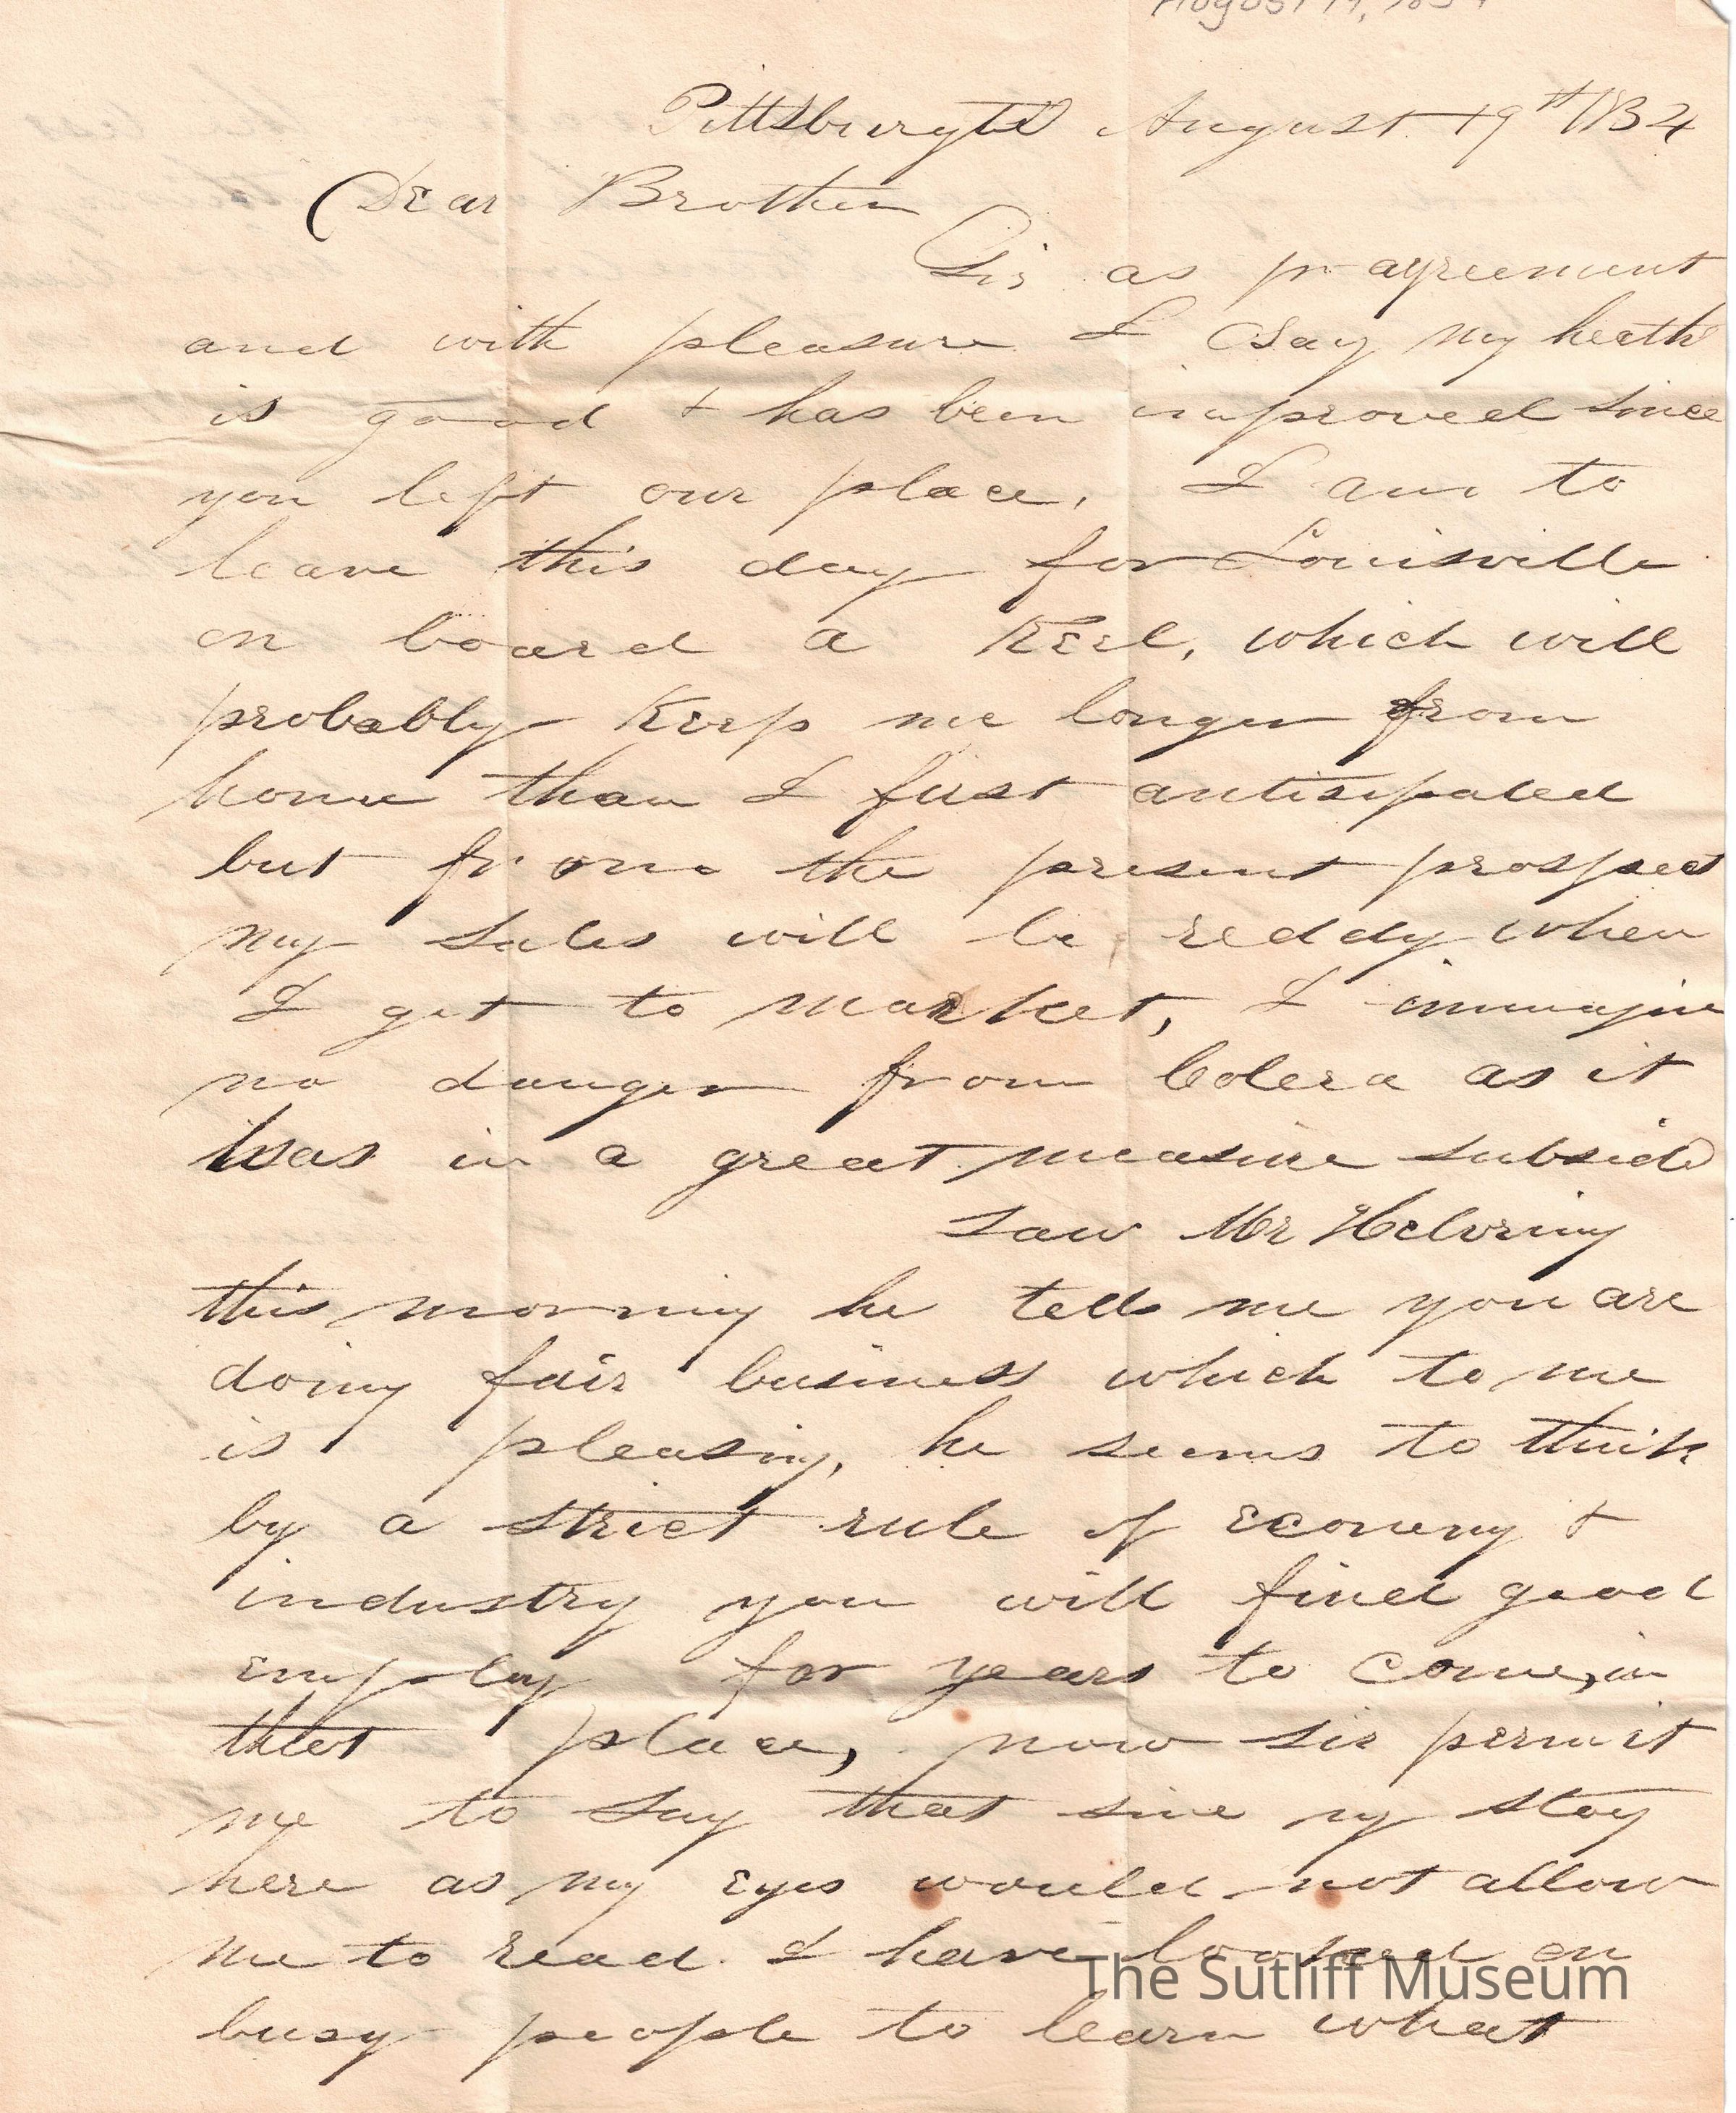 August 19, 1834
Pittsburgth August 19th 1834
Dear Brother
Sir as pr agreement
and with pleasure I Say my heath
is good + has been improved since
you left our place, I am to
leave this day for Louisville
on board a Keel, which will
probably Keep me longer from
home than I first antisipated
but from the present prospect
my sales will be reddy when
I get to market, I immagin
no danger from Colera as it
has in a great measure subsid
saw Mr Helvring
this morning he tells me you are
doing fair business which to me
is pleasing, he seems to think
by a strict rule of Econemy +
industry you will find good
employ for years to come, in
that place, now sir permit
me to say that sine my stay
here as my Eyes would not allow
me to read. I have looked on
busy people to learn what
The Sutliff Museum